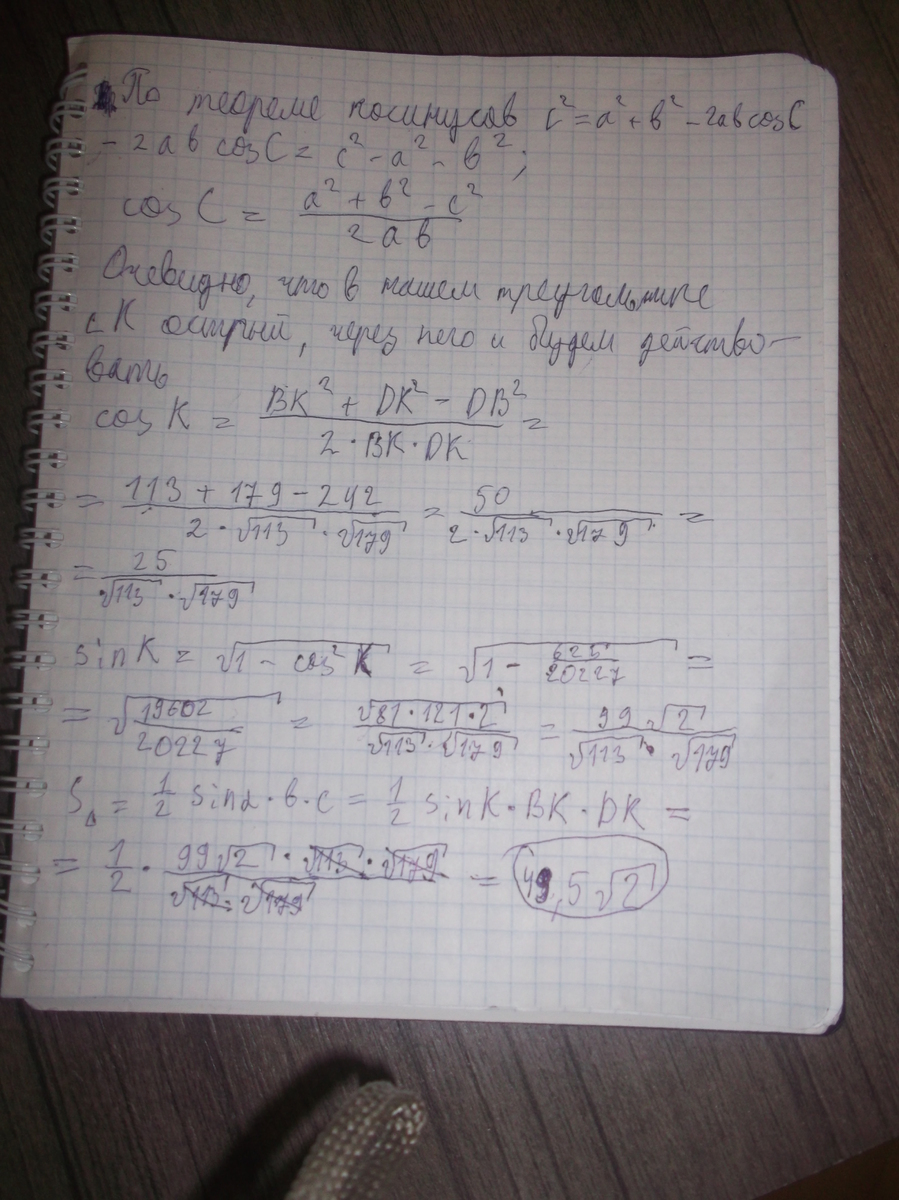 По теореме косинусов c² = a² + b² - 2ab cosC
- 2ab cosC = c² - a² - b²;
cosC = (a² + b² - c²) / 2ab
Очевидно, что в нашем треугольнике
∠K острый, через него и будем действо-
вать
cosK = (BK² + DK² - DB²) / (2·BK·DK) =
= (113 + 179 - 242) / (2·√113·√179) = 50 / (2·√113·√179) =
= 25 / (√113·√179)
sinK = √(1 - cos²K) = √(1 - 625/20227) =
= √(19602/20227) = √(81·121·2) / (√113·√179) = 99√2 / (√113·√179)
S△ = 1/2 sinα·b·c = 1/2 sinK·BK·DK =
= 1/2 · (99√2·√113·√179) / (√113·√179) = 49,5√2